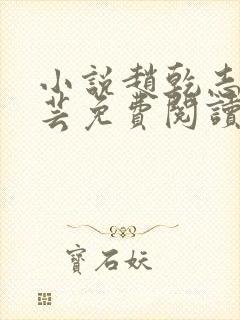 小說趙乾志
芸免費閱讀
寶石妖